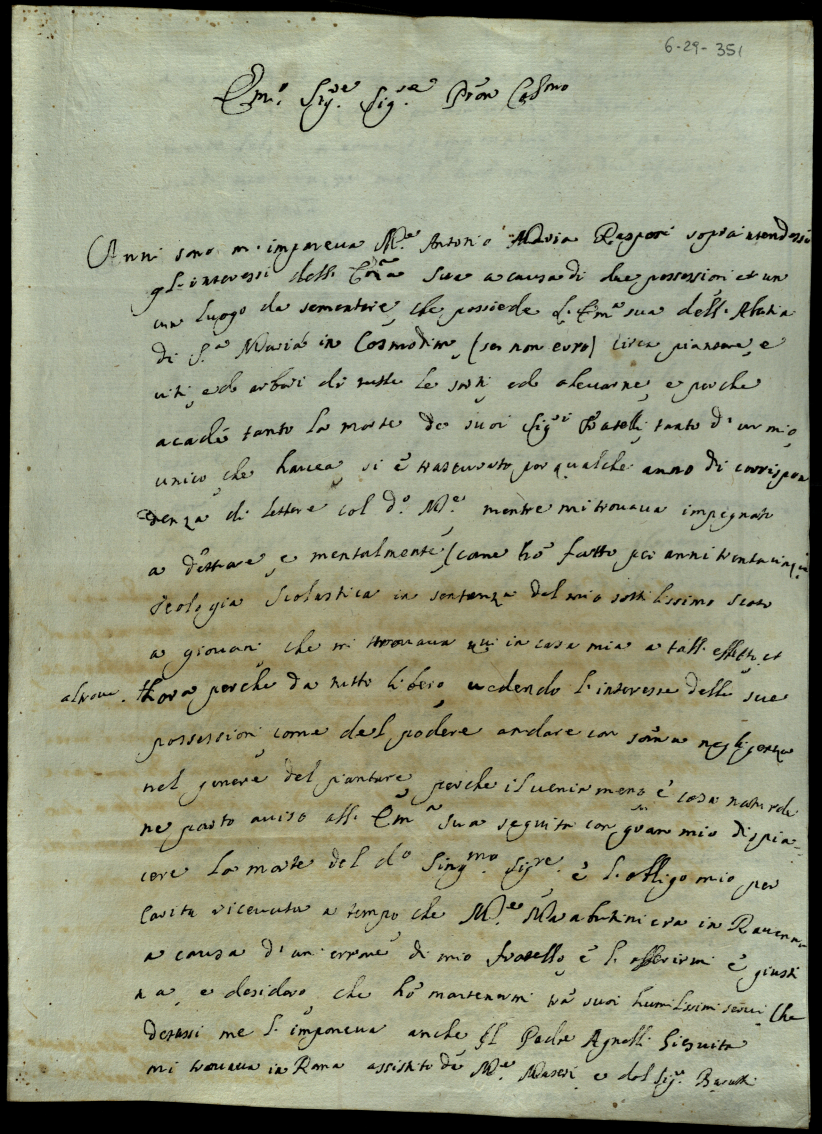 6-29-351
Em.o Sig.re Sig.re Pron Colmo
Anni sono m'imponeua M.re Antonio Maria Rasponi sopraintendessi
gl'interessi dell' Em.a Sua a causa di due possessioni et un
un luogo da sementare, che possiede l'Em.a sua dell'Abatia
di S.a Maria in Cosmodim, (se non erro) circa piantare, e
uiti, ed arbori di tutte le sorti ed aleuarne, e perche
acadé tanto la morte de suoi Sig.ri Fratelli, tanto d'un mio
unico, che haueua, si è trascurato per qualche anno di corrispon
denza di lettere col d.o M.re mentre mi trouaua impegnato
a dettare, e mentalmente, (come hò fatto per anni trentacinque
Teologia Scolastica in sentenza del mio sottilissimo Scoto
a giouani che mi trouaua qui in casa mia a tall'effetto, et
altroue. Hora perche da tutto libero, uedendo l'interesse delle sue
possessioni come del podere andare con somma negligenza
nel genere del piantare, perche il uenir meno è cosa naturale
ne porto auiso all'Em.a sua seguita con gran mio dispia-
cere la morte del d.o Sing.mo Sig.re, e l'obligo mio per
Carità riceuuta a tempo che M.re Marabutini era in Rauenna
a causa d'un errore di mio fratello, e l'asserirmi è giusti
tia, e desidero, che hò mantenermi trà suoi humilissimi serui Che
dessi me l'imponeua anche il Padre Agnelli Giesuita
mi trouaua in Roma assistito da M.re Maseri, e dal Sig.r